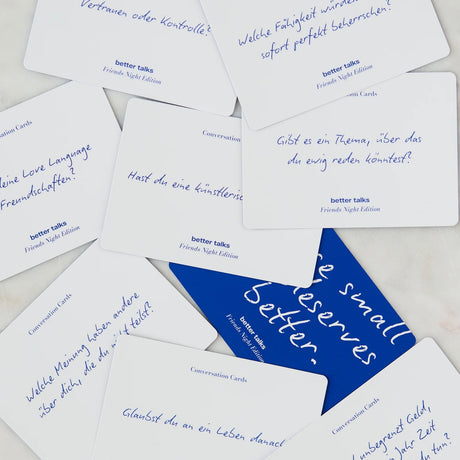 Vertrauen oder Kontrolle?
better talks
Friends Night Edition
Welche Fähigkeit
sofort perfekt beherrschen?
better talks
Friends Night Edition
Conversation Cards
Love Language
Freundschaften?
better talks
Friends Night Edition
Conversation
Hast du eine
better talks
Friends Night Edition
Cards
Gibt es ein Thema, über das
du ewig reden könntest?
better talks
Friends Night Edition
small
deserves
better.
better talks
Friends Night Edition
Conversation Cards
Welche Meinung haben andere
über dich, die du teilst?
Conversation Cards
Glaubst du an ein Leben danach
Conversation Cards
unbegrenzt Geld,
Jahr Zeit
du tun?